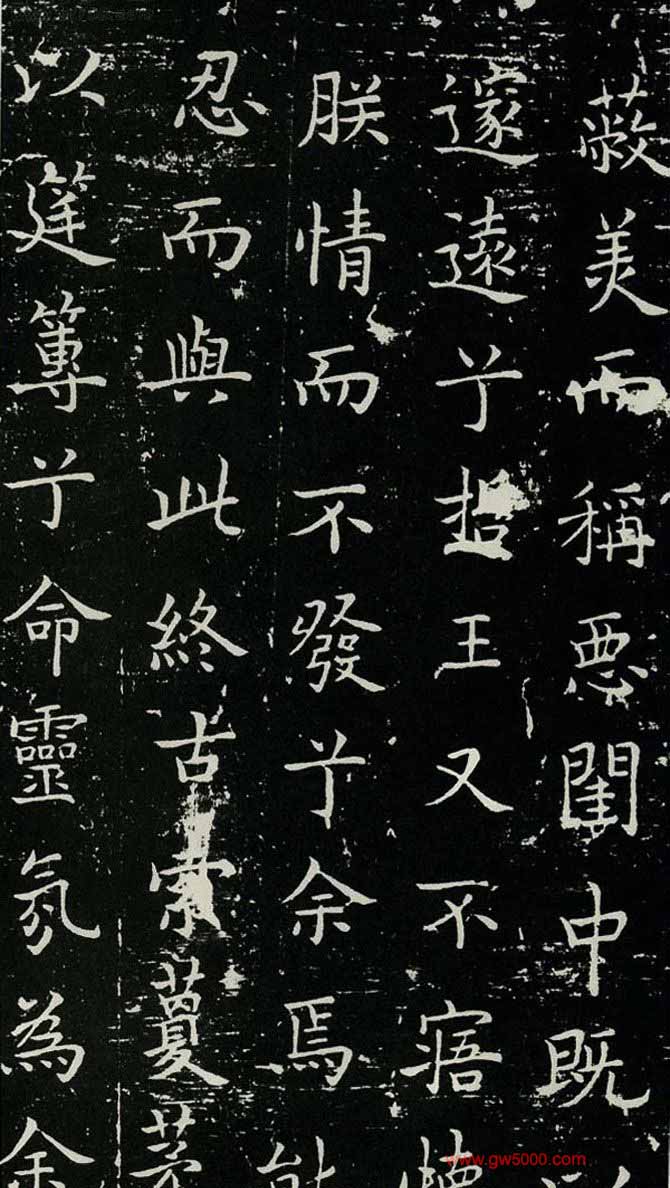 蔽美而稱惡閨中既
邃遠兮王又不寤
朕情而不發兮余焉
忍而與此終古索藑茅
以筳篿兮命靈氛為余
www.gw5000.com